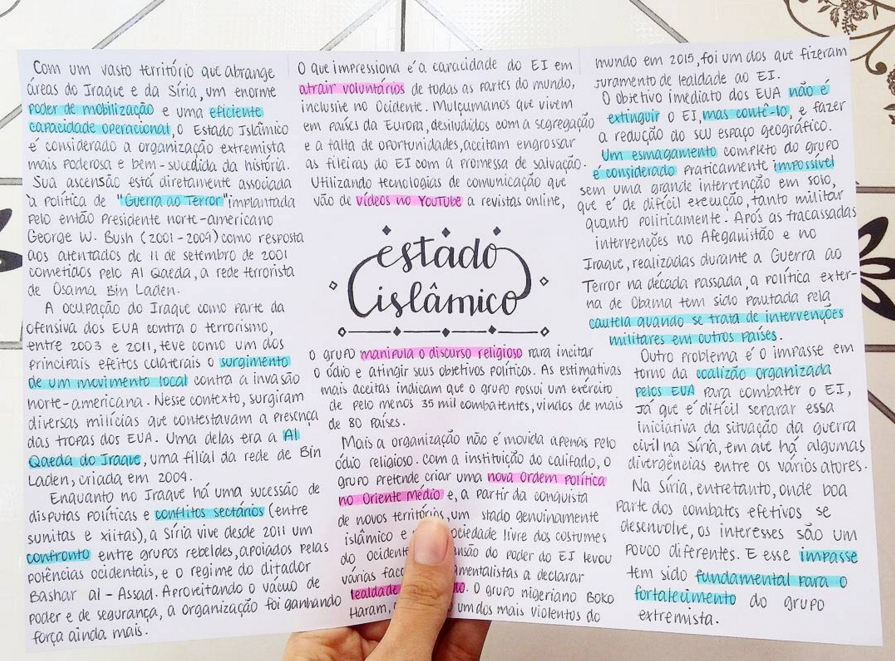 Com um vasto território que abrange
áreas do Iraque e da Síria, um enorme
poder de mobilização e uma eficiente
capacidade operacional, o Estado Islâmico
é considerado a organização extremista
mais poderosa e bem-sucedida da história.
Sua ascensão está diretamente associada
à política de "Guerra ao Terror" implantada
pelo então presidente norte-americano
George W. Bush (2001-2009) como resposta
aos atentados de 11 de setembro de 2001
cometidos pelo Al Qaeda, a rede terrorista
de Osama Bin Laden.
A ocupação do Iraque como parte da
ofensiva dos EUA contra o terrorismo,
entre 2003 e 2011, teve como um dos
principais efeitos colaterais o surgimento
de um movimento local contra a invasão
norte-americana. Nesse contexto, surgiram
diversas milícias que contestavam a presença
das tropas dos EUA. Uma delas era a Al
Qaeda do Iraque, uma filial da rede de Bin
Laden, criada em 2009.
Enquanto no Iraque há uma sucessão de
disputas políticas e conflitos sectários (entre
sunitas e xiitas), a Síria vive desde 2011 um
confronto entre grupos rebeldes, apoiados pelas
potências ocidentais, e o regime do ditador
Bashar al-Assad. Aproveitando o vácuo de
poder e de segurança, a organização foi ganhando
força ainda mais.
O que impressiona é a capacidade do EI em
atrair voluntários de todas as partes do mundo,
inclusive no Ocidente. Mulçumanos que vivem
em países da Europa, desiludidos com a segregação
e a falta de oportunidades, aceitam engrossar
as fileiras do EI com a promessa de salvação.
Utilizando tecnologias de comunicação que
vão de vídeos no YouTube a revistas online,
estado
islâmico
o grupo manipula o discurso religioso para incitar
o ódio e atingir seus objetivos políticos. As estimativas
mais aceitas indicam que o grupo possui um exército
de pelo menos 35 mil combatentes, vindos de mais
de 80 países.
Mais a organização não é movida apenas pelo
ódio religioso. Com a instituição do califado, o
grupo pretende criar uma nova ordem política
no Oriente Médio e, a partir da conquista
de novos territórios, um stado genuinamente
islâmico e ociedade livre dos costumes
do ocidente nsão do poder do EI levou
várias fac amentalistas a declarar
lealdade O grupo nigeriano Boko
Haram, um dos mais violentos do
mundo em 2015, foi um dos que fizeram
juramento de lealdade ao EI.
O objetivo imediato dos EUA não é
extinguir o EI, mas contê-lo, e fazer
a redução do seu espaço geográfico.
Um esmagamento completo do grupo
é considerado praticamente impossível
sem uma grande intervenção em solo,
que é de difícil execução, tanto militar
quanto politicamente. Após as fracassadas
intervenções no Afeganistão e no
Iraque, realizadas durante a Guerra ao
Terror na década passada, a política exter-
na de Obama tem sido pautada pela
cautela quando se trata de intervenções
militares em outros países.
Outro problema é o impasse em
torno da coalizão organizada
pelos EUA para combater o EI,
já que é difícil separar essa
iniciativa da situação da guerra
civil na Síria, em que há algumas
divergências entre os vários atores.
Na Síria, entretanto, onde boa
parte dos combates efetivos se
desenvolve, os interesses são um
pouco diferentes. E esse impasse
tem sido fundamental para o
fortalecimento do grupo
extremista.